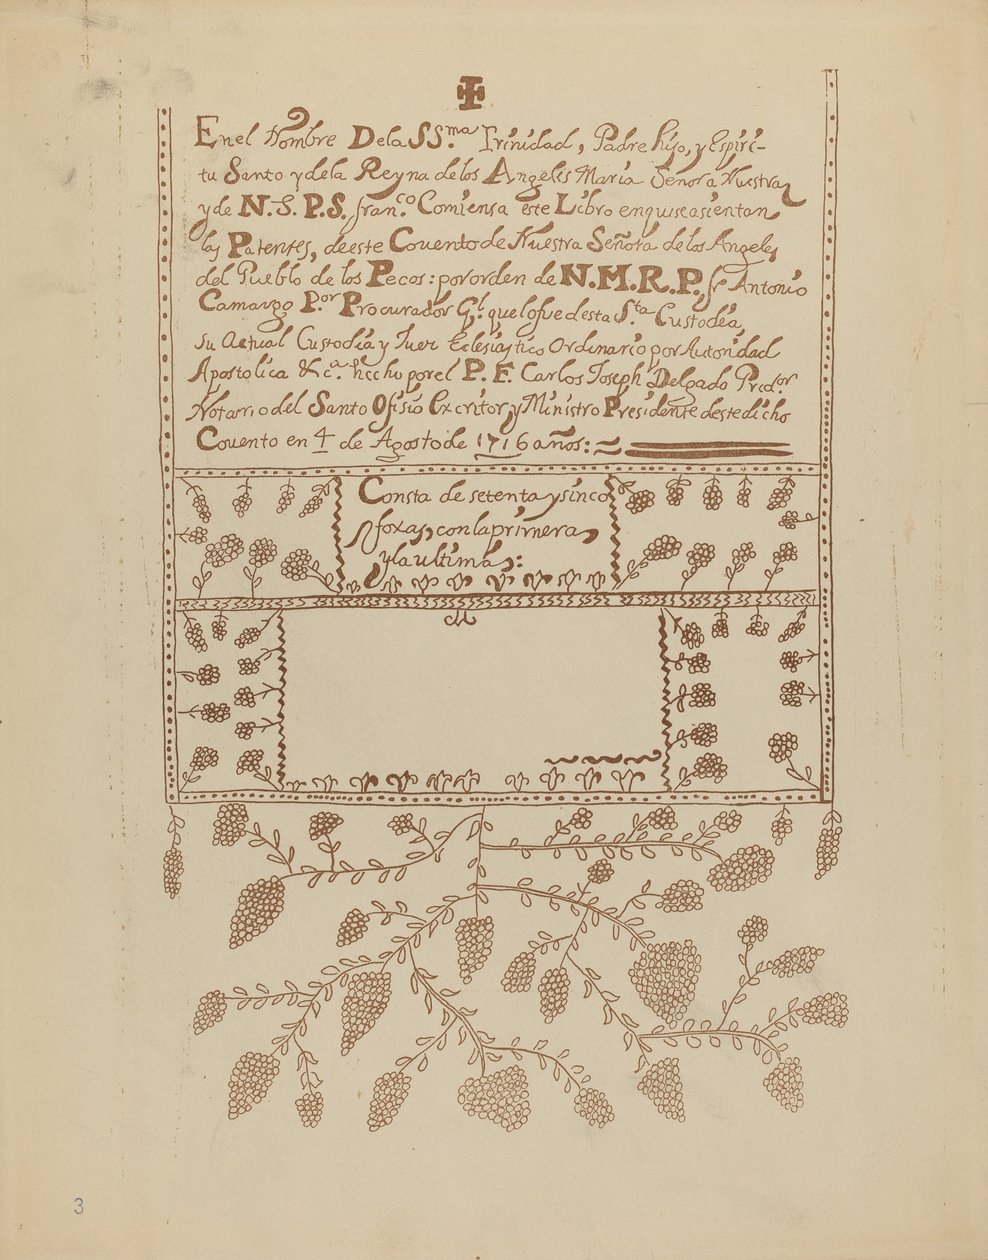 En el Nombre De la SS.ma Trinidad, Padre hijo, y Espiri-
tu Santo y de la Reyna de los Angeles Maria Señora Nuestra
y de N. S. P. S. fran.co Comiensa este Libro en qu se asientan
las Patentes, de este Couento de Nuestra Señora de los Angeles
del Pueblo de los Pecos: por orden de N. M. R. P. fr Antonio
Camargo P.or Procurador G.l que lo fue desta S.ta Custodia,
su Actual Custodia y Juez Eclesiastico Ordinario por Autoridad
Apostolica &c.a hecho por el P. F. Carlos Joseph Delgado Pred.or
Notario del Santo Ofisio Excritor, y Ministro Presidente deste dicho
Couento en 4 de Agosto de 1716 años:
Consta de setenta y sinco
foxas, con la primera
y la ultima:
3